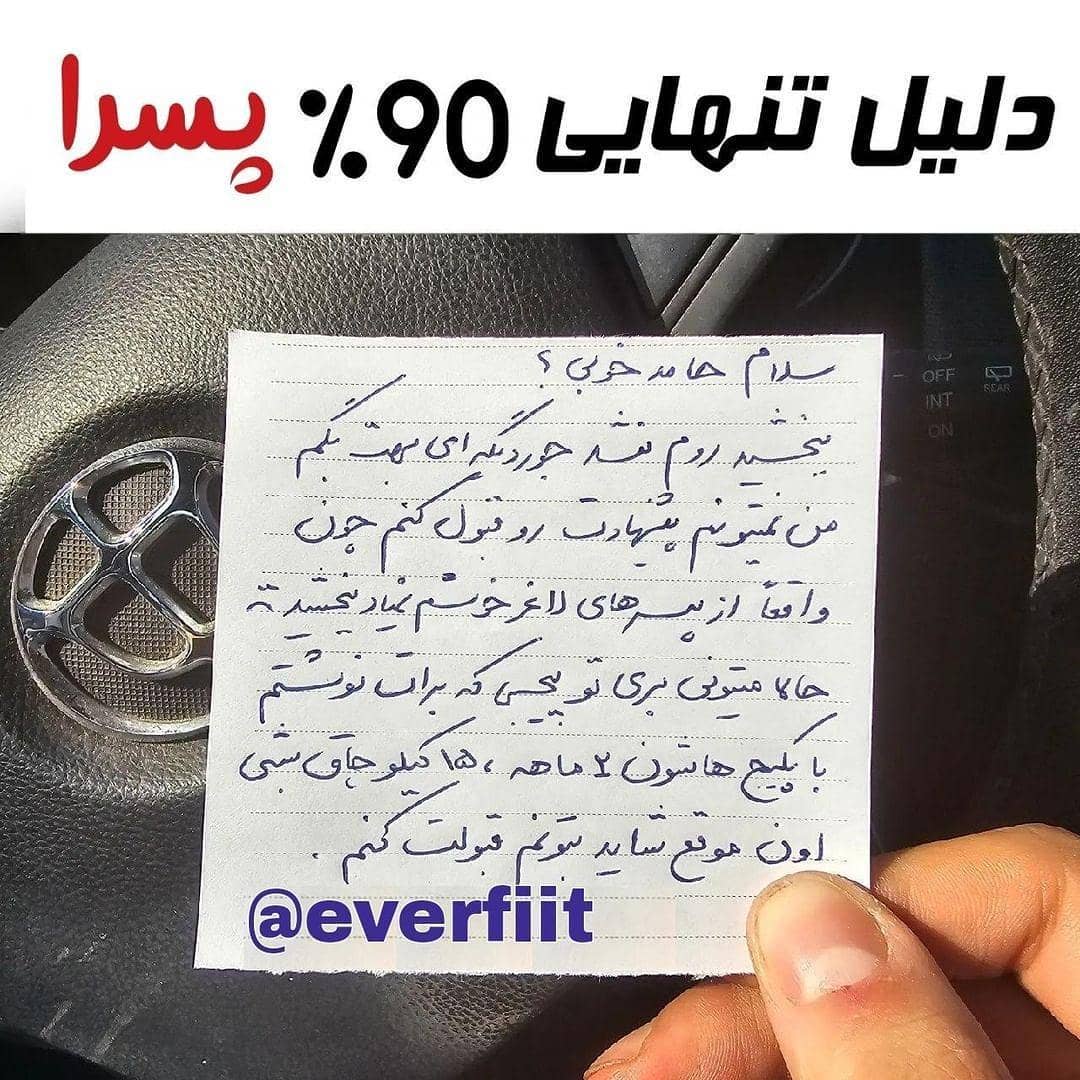 دلیل تنهایی 90٪ پسرا
سلام حامد خوبی ؟
ببخشید روم نشد جور دیگه ای بهت بگم
من نمیتونم پیشنهادت رو قبول کنم چون
واقعاً از پسرهای لاغر خوشم نمیاد ببخشید
حالا میتونی بری تو پیجی که برات نوشتم
با پکیج هاشون ۲ ماهه ، ۱۵ کیلو چاق بشی
اون موقع شاید بتونم قبولت کنم .
@everfiit
OFF
REAR
INT
ON